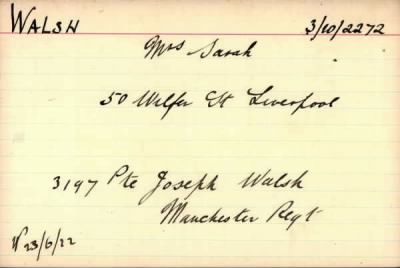 WALSH 3/10/2272
Mrs Sarah
50 St Liverpool
3197 Pte Joseph Walsh
Manchester Regt
23/6/22